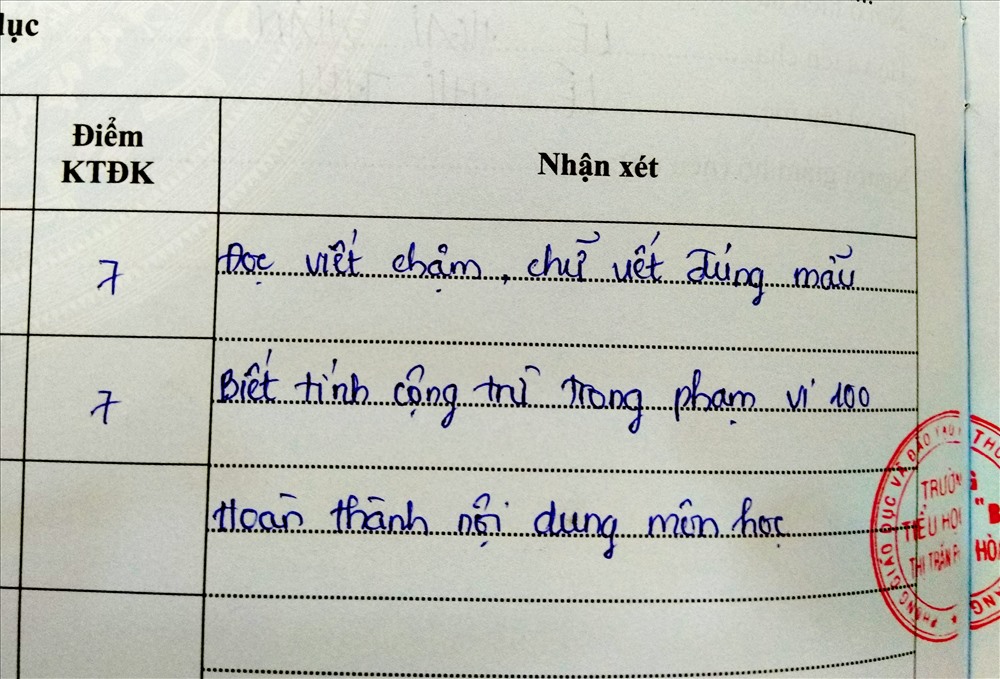 lục
Điểm
KTĐK
Nhận xét
7
Đọc viết chậm, chữ viết đúng mẫu
7
Biết tính cộng trừ trong phạm vi 100
Hoàn thành nội dung môn học
PHÒNG GIÁO DỤC VÀ ĐÀO TẠO
TRƯỜNG
TIỂU HỌC "B"
THỊ TRẤN